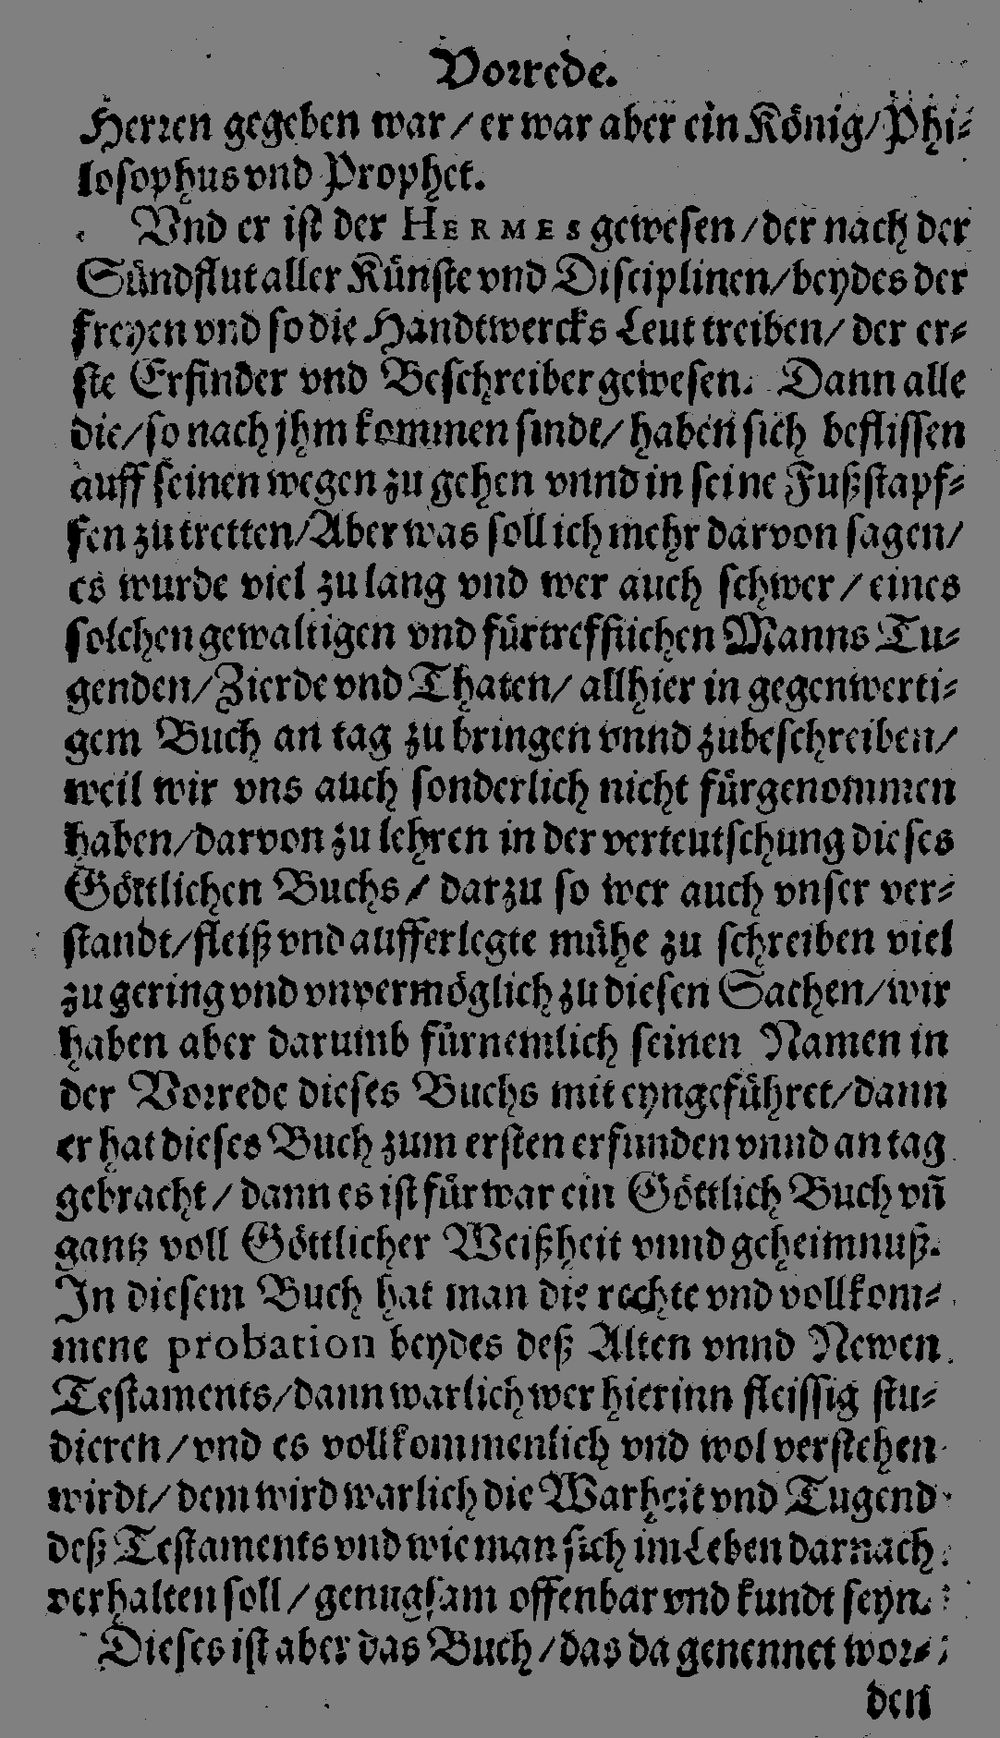 Vorrede.
Herren gegeben war / er war aber ein König / Phi-
losophus vnd Prophet.
Vnd er ist der HERMES gewesen / der nach der
Sündflut aller Künste vnd Disciplinen / beydes der
freyen vnd so die Handtwercks Leut treiben / der er-
ste Erfinder vnd Beschreiber gewesen. Dann alle
die / so nach jhm kommen sinde / haben sich beflissen
auff seinen wegen zu gehen vnnd in seine Fußstapf-
fen zu tretten / Aber was soll ich mehr darvon sagen /
es wurde viel zu lang vnd wer auch schwer / eines
solchen gewaltigen vnd fürtrefflichen Manns Tu-
genden / Zierde vnd Thaten / allhier in gegenwerti-
gem Buch an tag zu bringen vnnd zubeschreiben /
weil wir vns auch sonderlich nicht fürgenommen
haben / darvon zu lehren in der verteutschung dieses
Göttlichen Buchs / darzu so wer auch vnser ver-
standt / fleiß vnd aufferlegte mühe zu schreiben viel
zu gering vnd vnvermöglich zu diesen Sachen / wir
haben aber darumb fürnemlich seinen Namen in
der Vorrede dieses Buchs mit eyngeführet / dann
er hat dieses Buch zum ersten erfunden vnnd an tag
gebracht / dann es ist fürwar ein Göttlich Buch vñ
gantz voll Göttlicher Weißheit vnnd geheimnuß.
In diesem Buch hat man die rechte vnd vollkom-
mene probation beydes deß Alten vnnd Newen
Testaments / dann warlich wer hierinn fleissig stu-
dieren / vnd es vollkommenlich vnd wol verstehen
wirdt / dem wird warlich die Warheit vnd Tugend
deß Testaments vnd wie man sich im Leben darnach
verhalten soll / genugsam offenbar vnd kundt seyn.
Dieses ist aber das Buch / das da genennet wor-
den